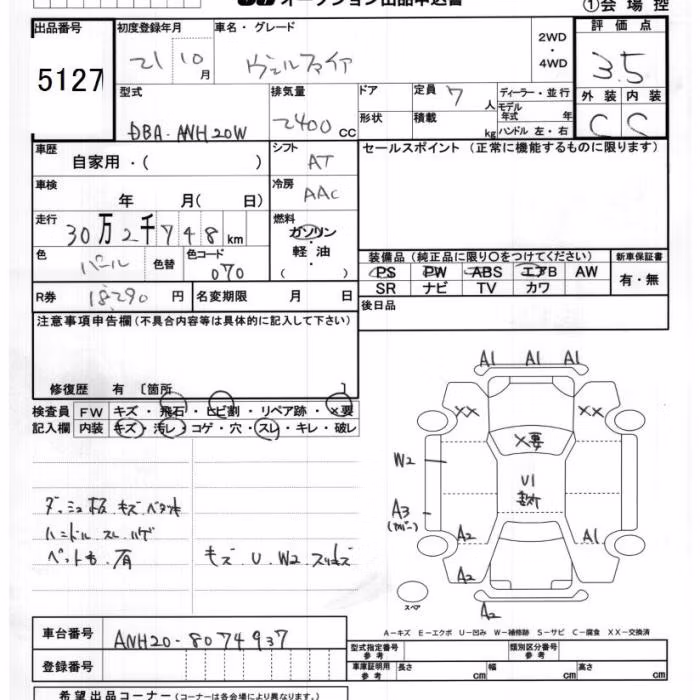 オークション出品申込書 ①会場控
出品番号 5127
初度登録年月 21 10 月
車名・グレード ヴェルファイア
2WD・4WD
評価点 3.5
外装 内装
C C
型式 DBA-ANH20W
排気量 2400 CC
ドア 形状
定員 7 人
積載 kg
ディーラー・並行
モデル年式 年
ハンドル 左・右
車歴 自家用・( )
シフト AT
セールスポイント (正常に機能するものに限ります)
車検 年 月( 日)
冷房 AAC
走行 30万2千748 km
燃料 ガソリン 軽油 ( )
色 パール 色替
色コード 070
装備品 (純正品に限り○をつけてください)
PS PW ABS エアB AW
SR ナビ TV カワ
新車保証書 有・無
R券 18,290 円
名変期限 月 日
後日品
注意事項申告欄 (不具合内容等は具体的に記入して下さい)
修復歴 有 〔箇所 〕
検査員記入欄
FW キズ・飛石・ヒビ割・リペア跡・×要
内装 キズ・汚レ・コゲ・穴・スレ・キレ・破レ
ダッシュ板 キズ ベタ付
ハンドル スレ ハゲ
ペット毛 有
キズ U W2 スリキズ
A1 A1 A1
XX XX
X要
W2
U1
A3
A2 A1
A2
A2
スペア
A－キズ E－エクボ U－凹み W－補修跡 S－サビ C－腐食 XX－交換済
車台番号 ANH20-8074937
登録番号
型式指定番号 参考
類別区分番号 参考
車庫証明用 参考 長さ cm 幅 cm 高さ cm
希望出品コーナー (コーナーは各会場により異なります。)